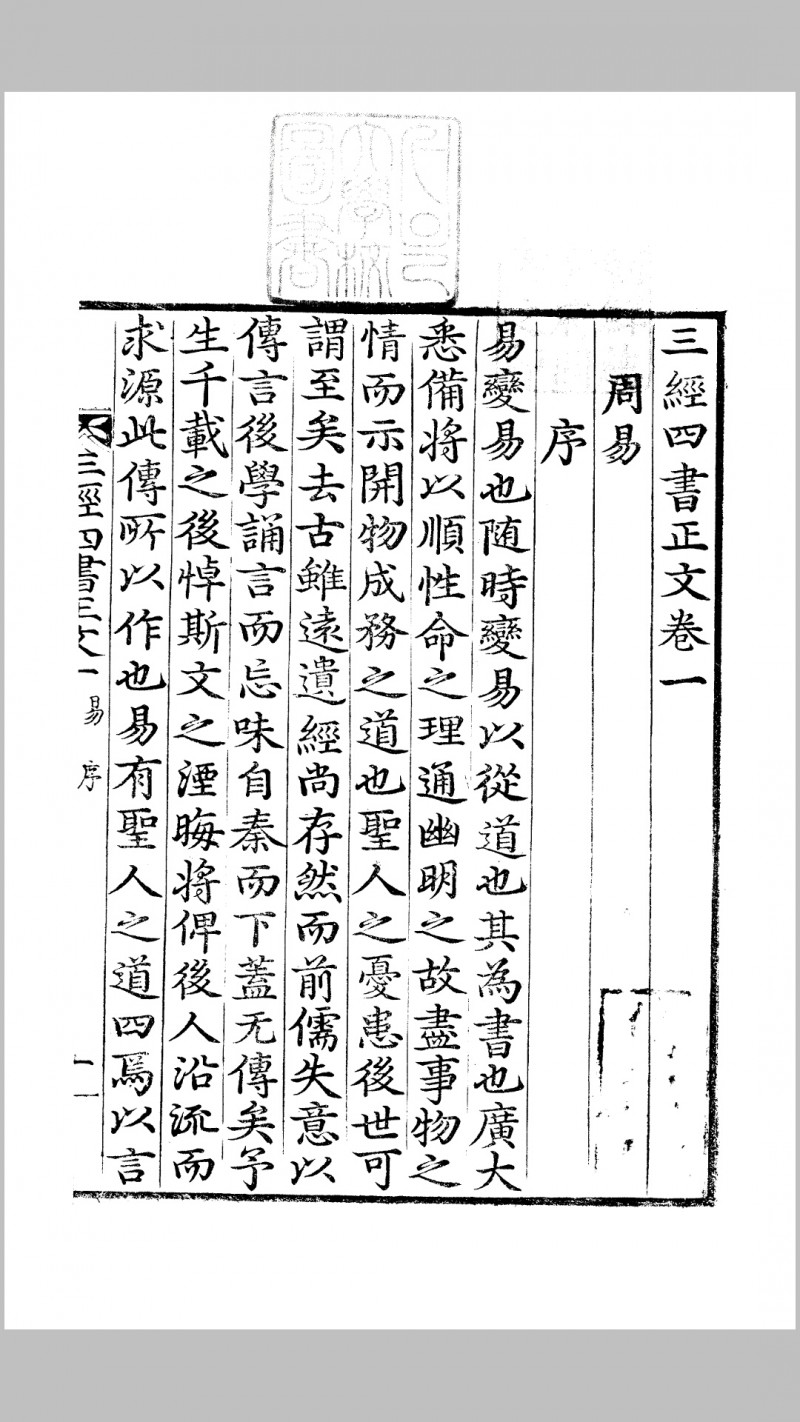 三經四書正文卷一
周易
序
易變易也随時變易以從道也其為書也廣大
悉備將以順性命之理通幽明之故盡事物之
情而示開物成務之道也聖人之憂患後世可
謂至矣去古雖遠遺經尚存然而前儒失意以
傳言後學誦言而忘味自秦而下蓋无傳矣予
生千載之後悼斯文之湮晦將俾後人沿流而
求源此傳所以作也易有聖人之道四焉以言
三經四書正文一
易序
一
大學校
圖書